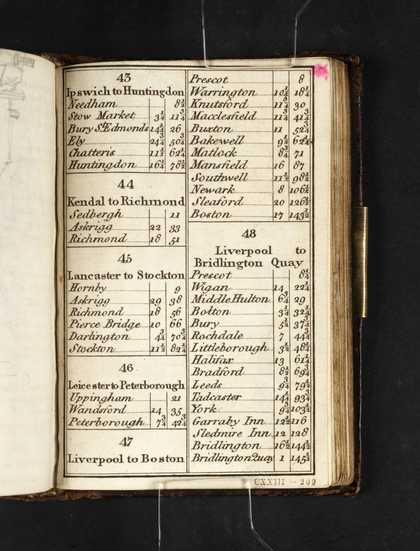 43
Ipswich to Huntingdon
Needham 8½
Stow Market 3¼ 11¾
Bury St. Edmonds 14¼ 26
Ely 24¾ 50¾
Chatteris 11½ 62¼
Huntingdon 16¼ 78½
44
Kendal to Richmond
Sedbergh 11
Askrigg 22 33
Richmond 18 51
45
Lancaster to Stockton
Hornby 9
Askrigg 29 38
Richmond 18 56
Pierce Bridge 10 66
Darlington 4¾ 70¾
Stockton 11½ 82¼
46
Leicester to Peterborough
Uppingham 21
Wandsford 14 35
Peterborough 7¾ 42¾
47
Liverpool to Boston
Prescot 8
Warrington 10¼ 18¼
Knutsford 11¾ 30
Macclesfield 11¾ 41¾
Buxton 11 52¾
Bakewell 9¾ 62½
Matlock 8½ 71
Mansfield 16 87
Southwell 11½ 98½
Newark 8 106½
Sleaford 20 126½
Boston 17 143½
48
Liverpool to
Bridlington Quay
Prescot 8¼
Wigan 14 22¼
Middle Hulton 6¾ 29
Bolton 3¼ 32¼
Bury 5¼ 37½
Rochdale 7 44½
Littleborough 3¾ 48¼
Halifax 13 61¼
Bradford 8¼ 69½
Leeds 9¾ 79¼
Tadcaster 14¼ 93½
York 9¾ 103¼
Garraby Inn 12¾ 116
Sledmire Inn 12 128
Bridlington 16½ 144½
Bridlington Quay 1 145½
CXXIII - 209